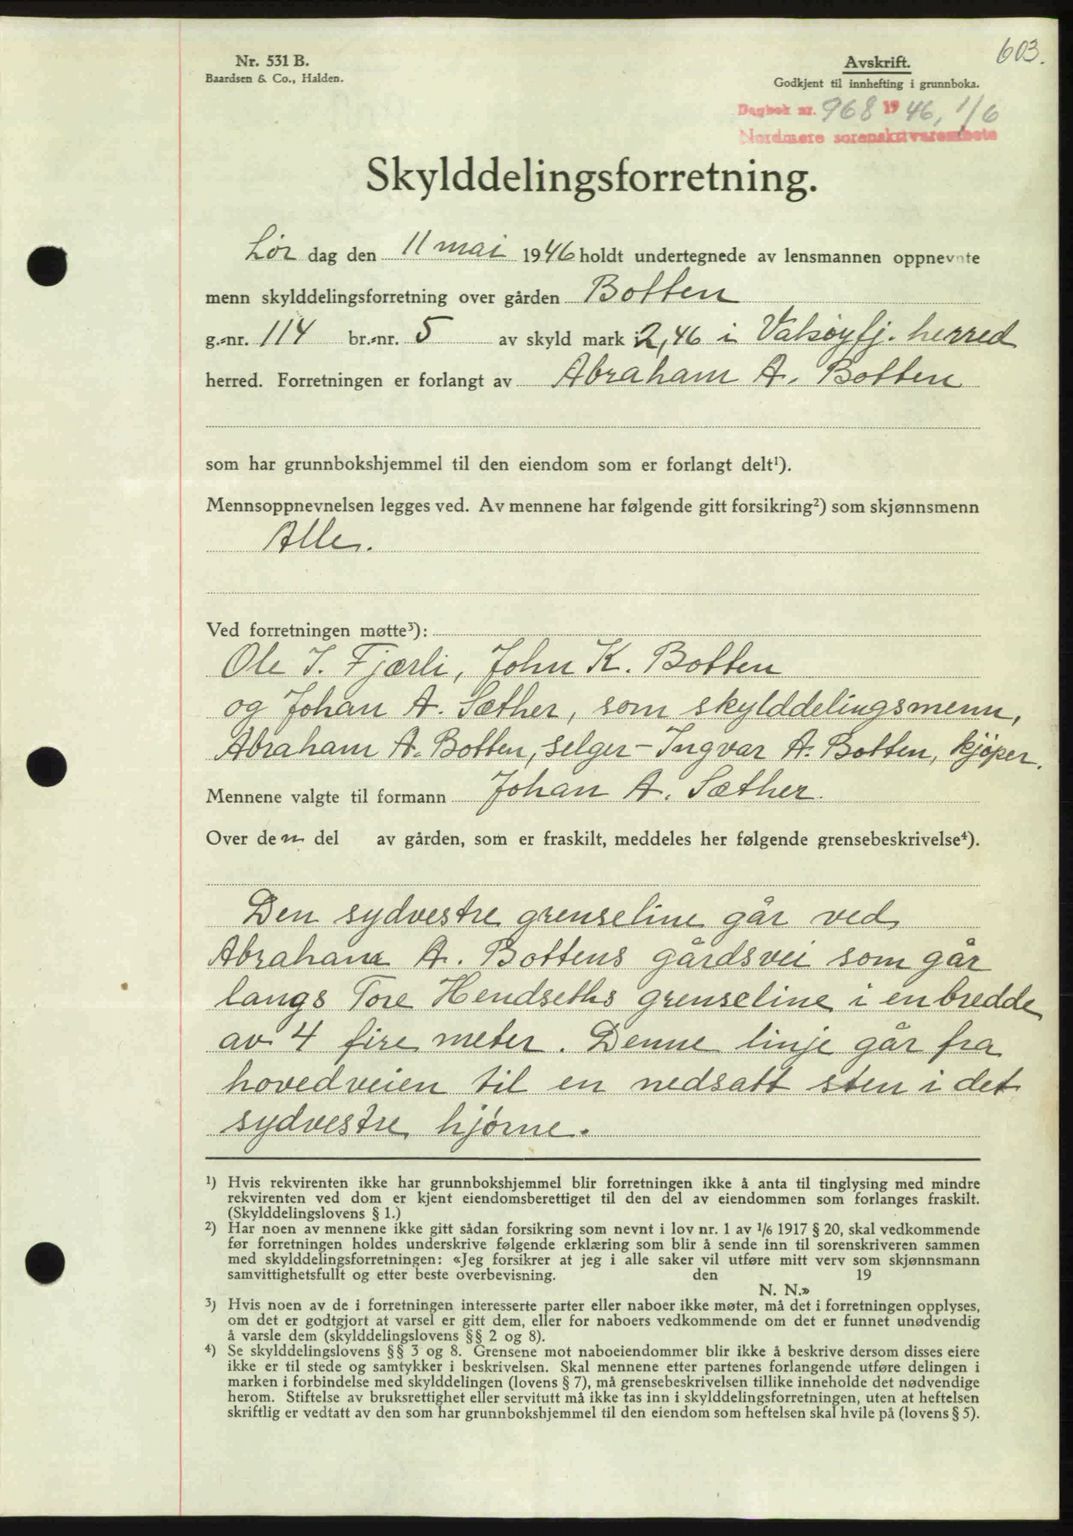 603.
Nr. 531 B.
Baardsen & Co., Halden.
Avskrift.
Godkjent til innhefting i grunnboka.
Dagbok nr. 968 1946, 1/6
Nordmøre sorenskriverembete
Skylddelingsforretning.
Lør dag den 11 mai 1946 holdt undertegnede av lensmannen oppnevnte
menn skylddelingsforretning over gården Botten
g.-nr. 114 br.-nr. 5 av skyld mark 2,46 i Valsøyfj. herred
herred. Forretningen er forlangt av Abraham A. Botten
som har grunnbokshjemmel til den eiendom som er forlangt delt¹).
Mennsoppnevnelsen legges ved. Av mennene har følgende gitt forsikring²) som skjønnsmenn
Alle.
Ved forretningen møtte³):
Ole I. Fjærli, John K. Botten
og Johan A. Sæther, som skylddelingsmenn,
Abraham A. Botten, selger – Ingvar A. Botten, kjøper.
Mennene valgte til formann Johan A. Sæther.
Over den del av gården, som er fraskilt, meddeles her følgende grensebeskrivelse⁴).
Den sydvestre grenseline går ved
Abraham A. Bottens gårdsvei som går
langs Tore Hendseths grenseline i en bredde
av 4 fire meter. Denne linje går fra
hovedveien til en nedsatt sten i det
sydvestre hjørne.
¹) Hvis rekvirenten ikke har grunnbokshjemmel blir forretningen ikke å anta til tinglysing med mindre
rekvirenten ved dom er kjent eiendomsberettiget til den del av eiendommen som forlanges fraskilt.
(Skylddelingslovens § 1.)
²) Har noen av mennene ikke gitt sådan forsikring som nevnt i lov nr. 1 av 1/6 1917 § 20, skal vedkommende
før forretningen holdes underskrive følgende erklæring som blir å sende inn til sorenskriveren sammen
med skylddelingsforretningen: «Jeg forsikrer at jeg i alle saker vil utføre mitt verv som skjønnsmann
samvittighetsfullt og etter beste overbevisning. den 19
N. N.»
³) Hvis noen av de i forretningen interesserte parter eller naboer ikke møter, må det i forretningen opplyses,
om det er godtgjort at varsel er gitt dem, eller for naboers vedkommende om det er funnet unødvendig
å varsle dem (skylddelingslovens §§ 2 og 8).
⁴) Se skylddelingslovens §§ 3 og 8. Grensene mot naboeiendommer blir ikke å beskrive dersom disses eiere
ikke er til stede og samtykker i beskrivelsen. Skal mennene etter partenes forlangende utføre delingen i
marken i forbindelse med skylddelingen (lovens § 7), må grensebeskrivelsen tillike inneholde det nødvendige
herom. Stiftelse av bruksrettighet eller servitutt må ikke tas inn i skylddelingsforretningen, uten at heftelsen
skriftlig er vedtatt av den som har grunnbokshjemmel til den eiendom som heftelsen skal hvile på (lovens § 5).